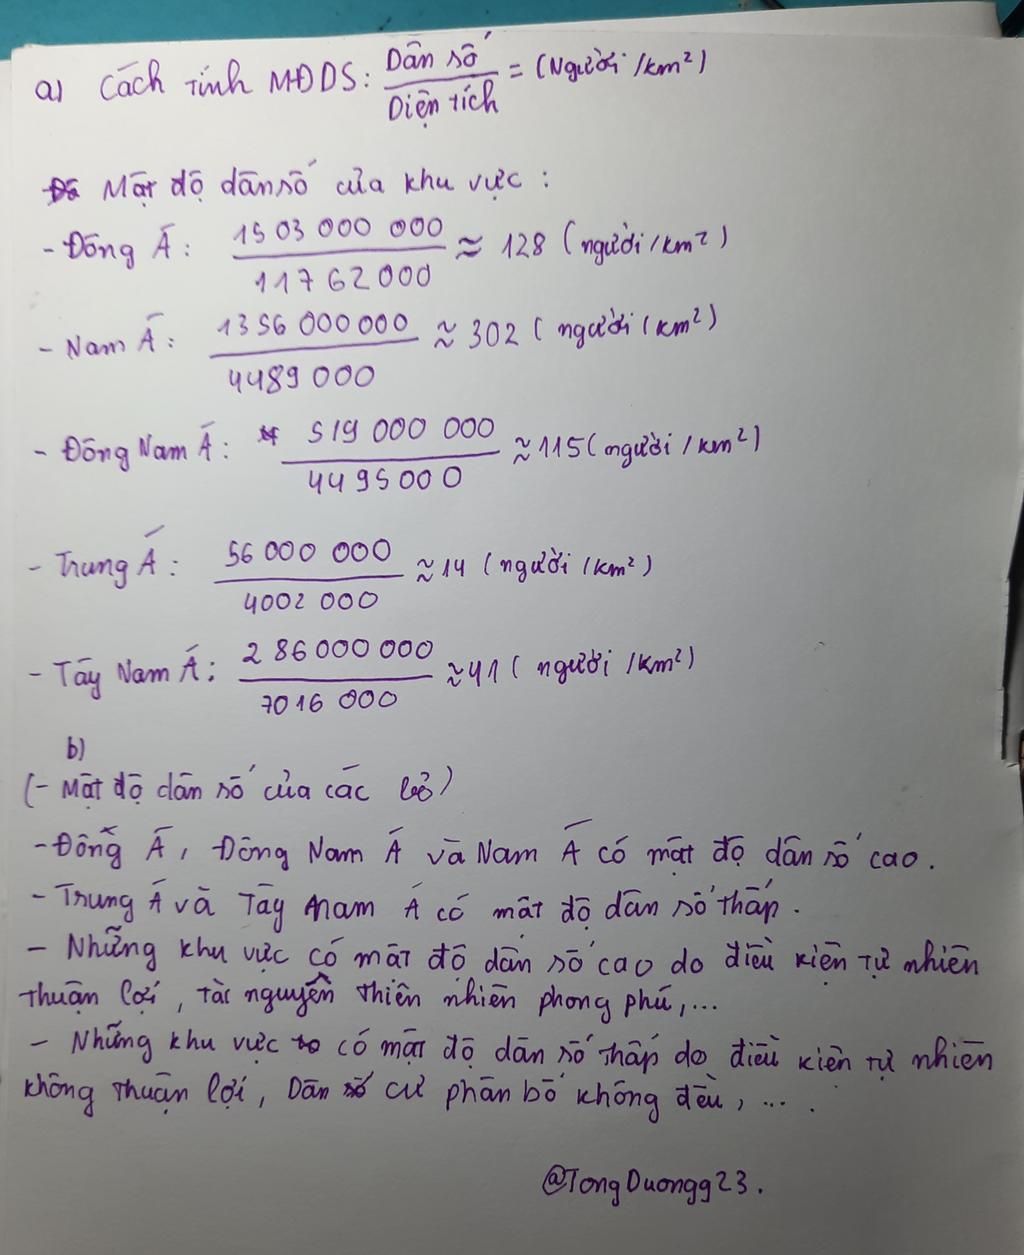 a) Cách tính MĐDS: Dân số / Diện tích = (Người/km²)
Mật độ dân số của khu vực:
- Đông Á: 1503 000 000 / 11762000 ≈ 128 (người/km²)
- Nam Á: 1356 000 000 / 4489 000 ≈ 302 (người/km²)
- Đông Nam Á: 519 000 000 / 4495000 ≈ 115 (người/km²)
- Trung Á: 56 000 000 / 4002 000 ≈ 14 (người/km²)
- Tây Nam Á: 286 000 000 / 7016 000 ≈ 41 (người/km²)
b)
(- Mật độ dân số của các)
- Đông Á, Đông Nam Á và Nam Á có mật độ dân số cao.
- Trung Á và Tây Nam Á có mật độ dân số thấp.
- Những khu vực có mật độ dân số cao do điều kiện tự nhiên
thuận lợi, tài nguyên thiên nhiên phong phú,...
- Những khu vực có mật độ dân số thấp do điều kiện tự nhiên
không thuận lợi, Dân cư phân bố không đều, ....
@TongDuongg23.